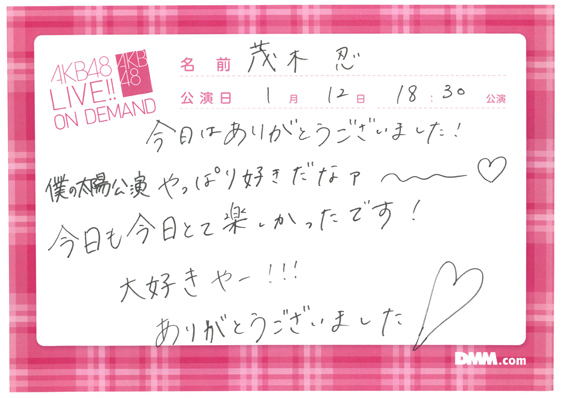 AKB48
LIVE!!
ON DEMAND
AKB
48
名前 茂木忍
公演日 1月 12日 18:30 公演
今日はありがとうございました!
僕の太陽公演 やっぱり好きだなァ 〜〜 ♡
今日も今日とて楽しかったです!
大好きやー!!!
ありがとうございました♡
DMM.com